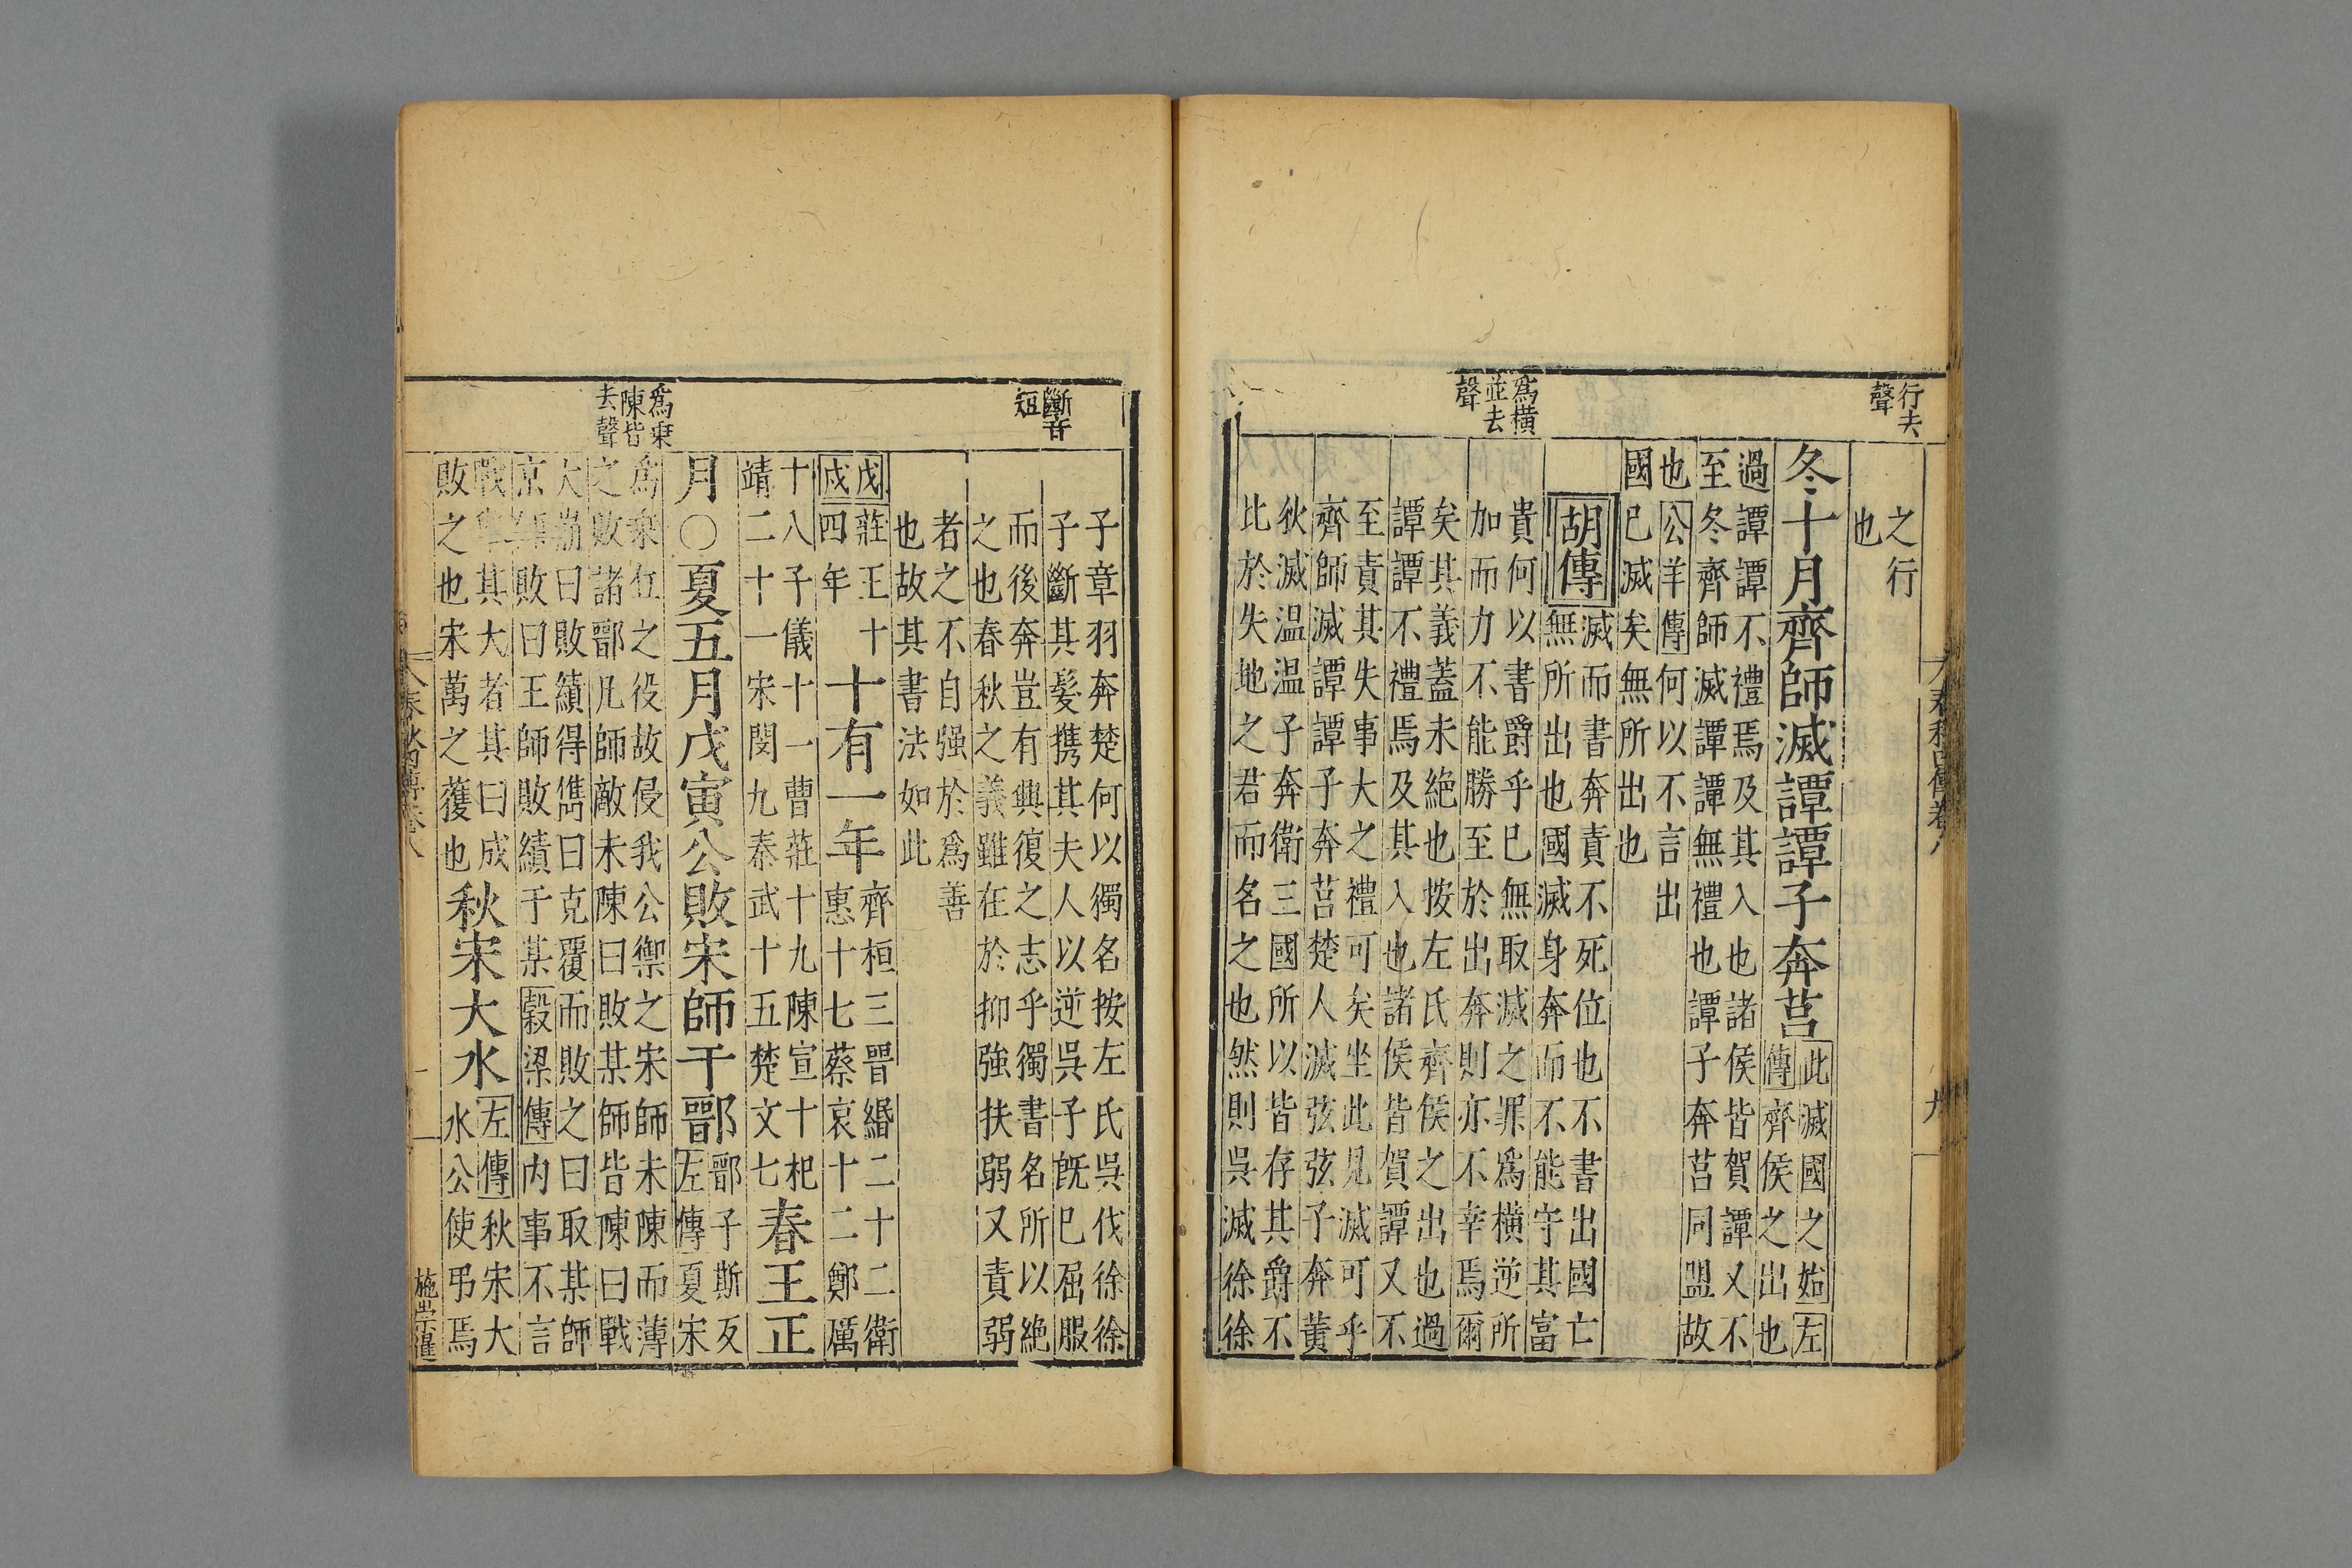 行去
聲
之行
也
冬十月齊師滅譚譚子奔莒
此滅國之始左
傳齊侯之出也
過譚譚不禮焉及其入也諸侯皆賀譚又不
至冬齊師滅譚譚無禮也譚子奔莒同盟故
也公羊傳何以不言出
國已滅矣無所出也
爲横
並去
聲
胡傳
滅而書奔責不死位也不書出國亡
無所出也國滅身奔而不能守其富
貴何以書爵乎已無取滅之罪爲横逆所
加而力不能勝至於出奔則亦不幸焉爾
矣其義蓋未絶也按左氏齊侯之出也過
譚譚不禮焉及其入也諸侯皆賀譚又不
至責其失事大之禮可矣坐此見滅可乎
齊師滅譚譚子奔莒楚人滅弦弦子奔黄
狄滅温温子奔衛三國所以皆存其爵不
比於失地之君而名之也然則吳滅徐徐
斷音
短
子章羽奔楚何以獨名按左氏吳伐徐徐
子斷其髮携其夫人以逆吳子既已屈服
而後奔豈有興復之志乎獨書名所以絶
之也春秋之義雖在於抑強扶弱又責弱
者之不自强於爲善
也故其書法如此
戊莊王十
戌四年
十有一年
齊桓三晉緡二十二衛
惠十七蔡哀十二鄭厲
十八子儀十一曹莊十九陳宣十杞
靖二十一宋閔九秦武十五楚文七
春王正
月〇夏五月戊寅公敗宋師于鄑
鄑子斯反
左傳夏宋
爲乘
陳皆
去聲
爲乘丘之役故侵我公禦之宋師未陳而薄
之敗諸鄑凡師敵未陳曰敗某師皆陳曰戰
大崩曰敗績得儁曰克覆而敗之曰取某師
京師敗曰王師敗績于某穀梁傳内事不言
戰舉其大者其曰成
敗之也宋萬之獲也
秋宋大水
左傳秋宋大
水公使弔焉